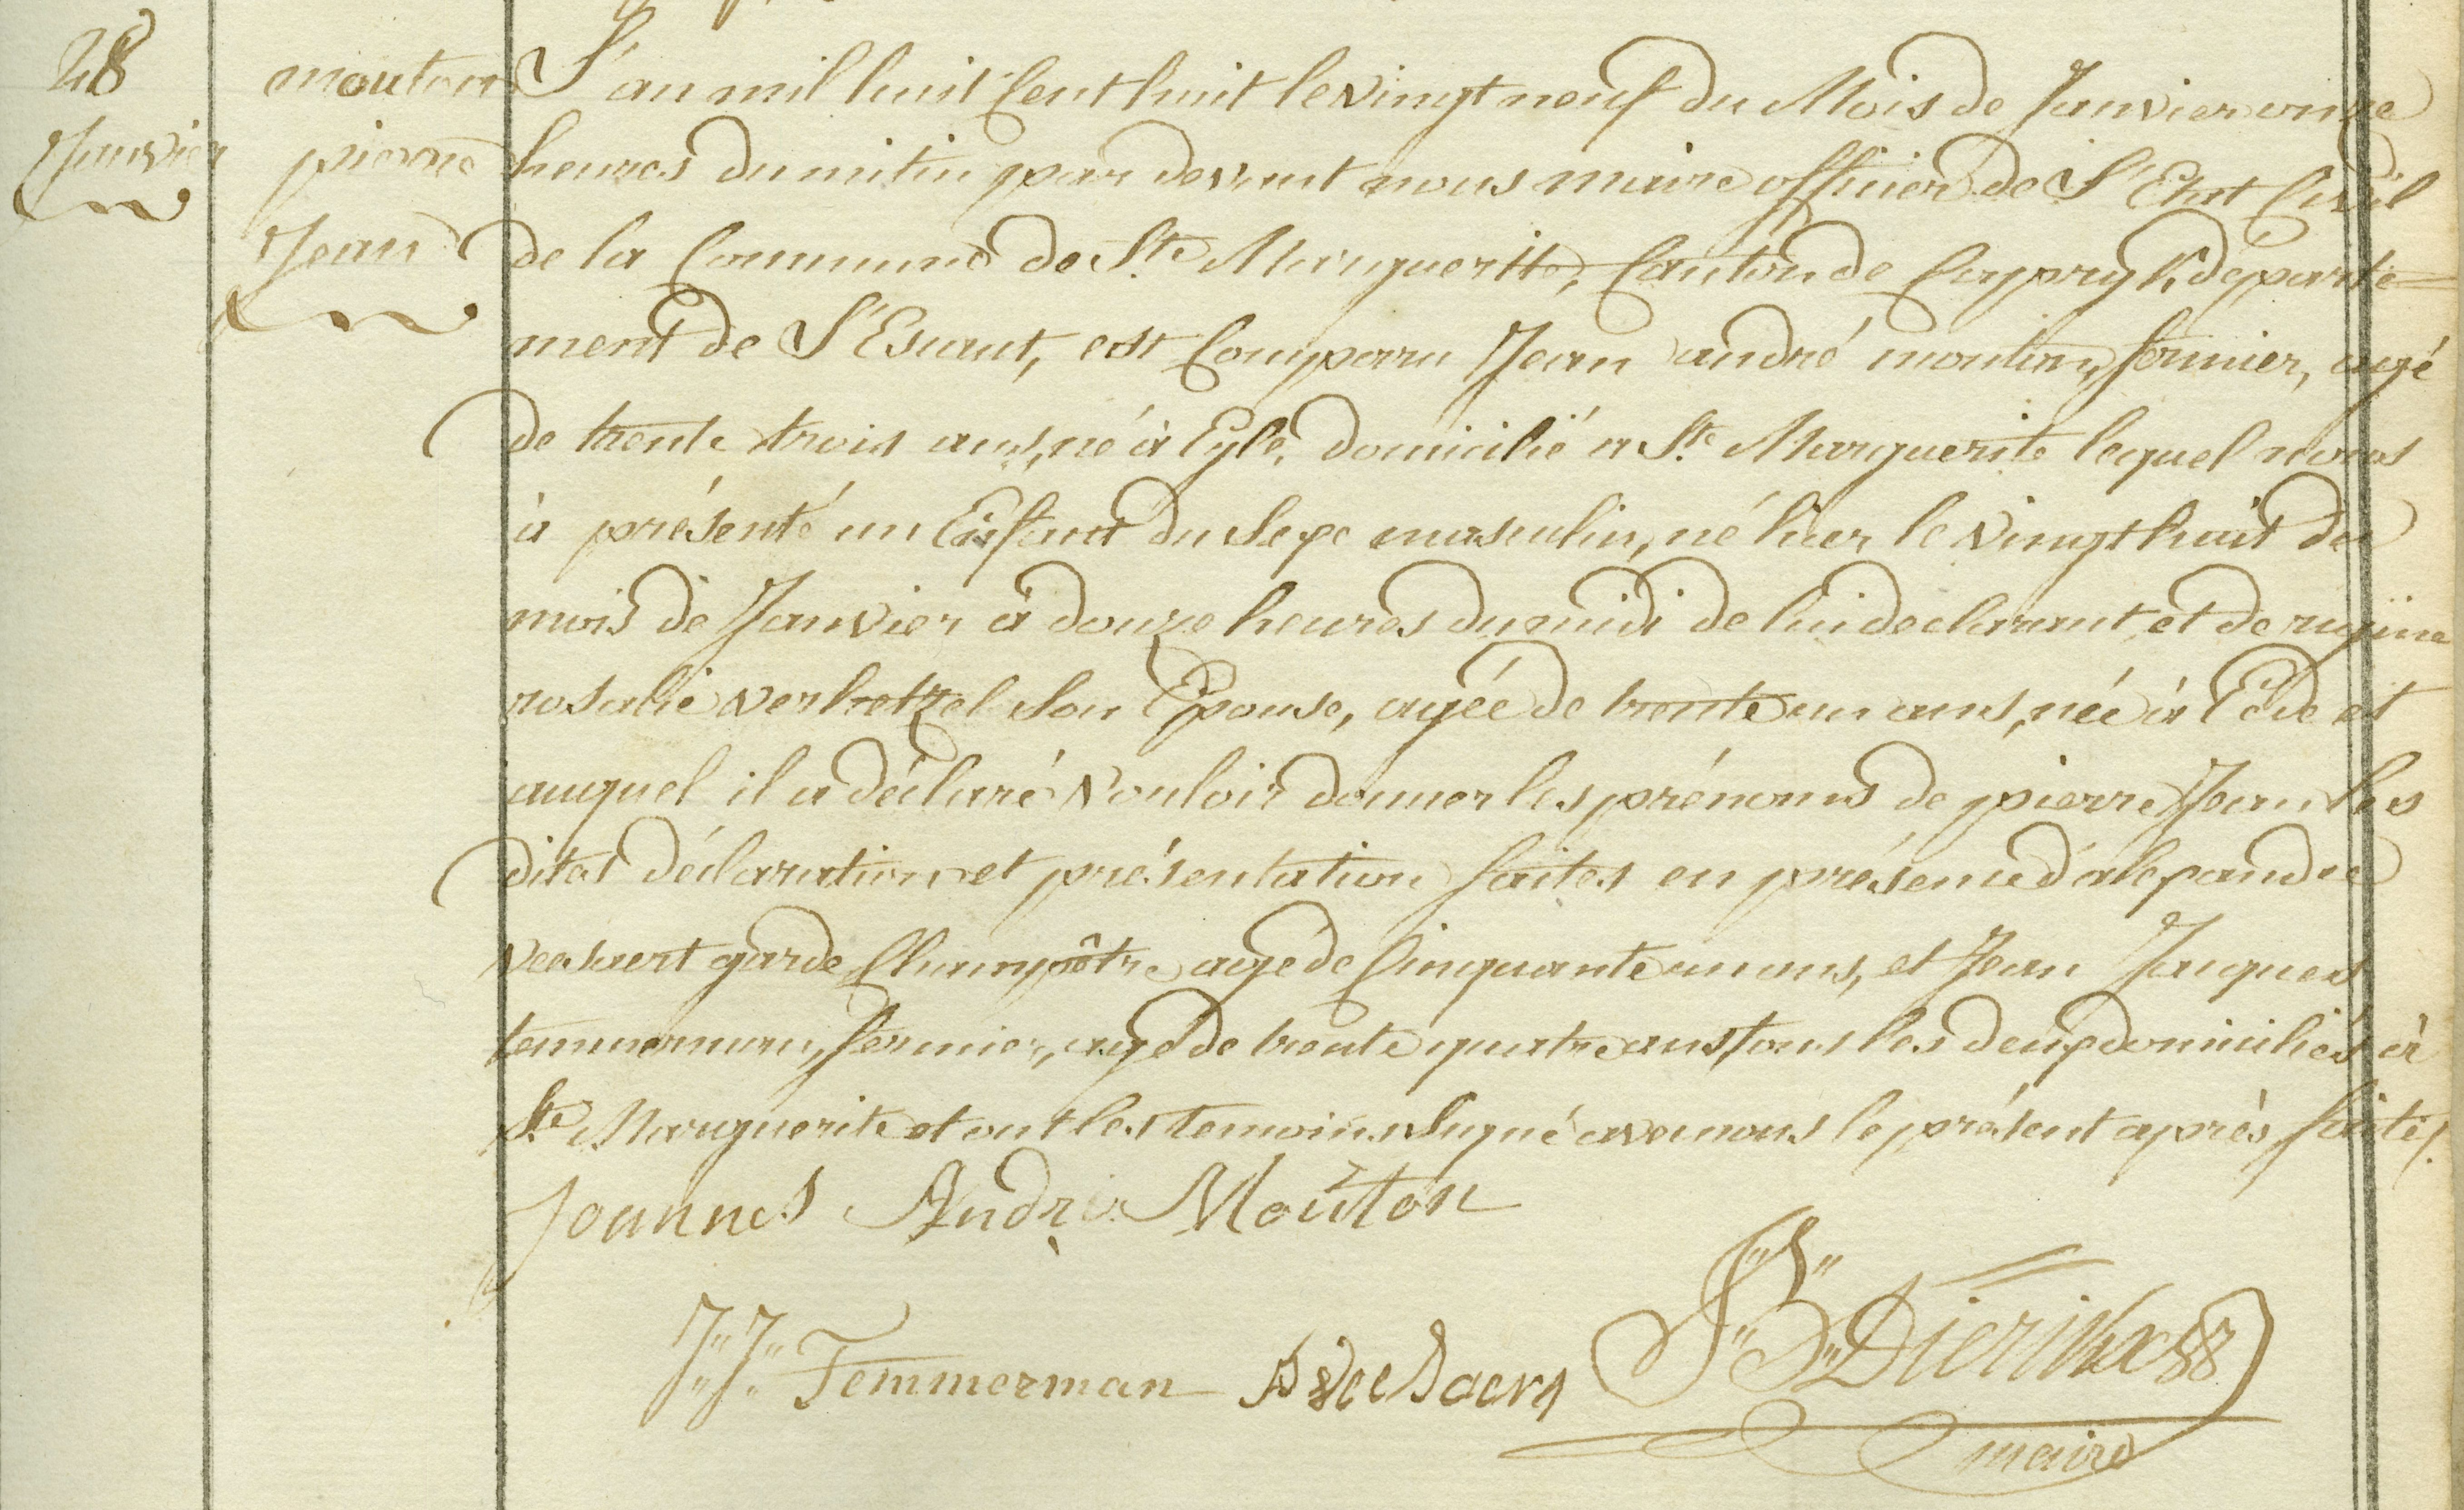 28
Janvier
mouton
pierre
Jean
L'an mil huit Cent huit le vingt neuf du Mois de Janvier onze
heures du matin par devant nous maire officier de L'Etat Civil
de la Commune de Ste. Marguerite, Canton de Capryk, départe=
ment de L'Escaut, est Comparu Jean andré mouton, fermier, agé
de trente trois ans, né à Eyle, domicilié a Ste. Marguerite lequel nous
à présenté un Enfant du Sexe masculin, né hier le vingt huit du
mois de Janvier à douze heures du midi de lui declarant et de regine
rosalie verhetzel Son Epouse, agée de trente un ans, née à Eede et
auquel il a déclaré vouloir donner les prénoms de pierre Jean les
dites déclaration et présentation faites en présence d'alexandre
veesaert garde Champôtre agé de Cinquante un ans, et Jean Jacques
temmerman, fermier, agé de trente quatre ans tous les deux domiciliés à
Ste. Marguerite et ont les temoins Signé avec nous le présent après faite/.
Joannes Andri Mouton
J: J: Temmerman
Vee Saert
J: B: Dierinkx
maire